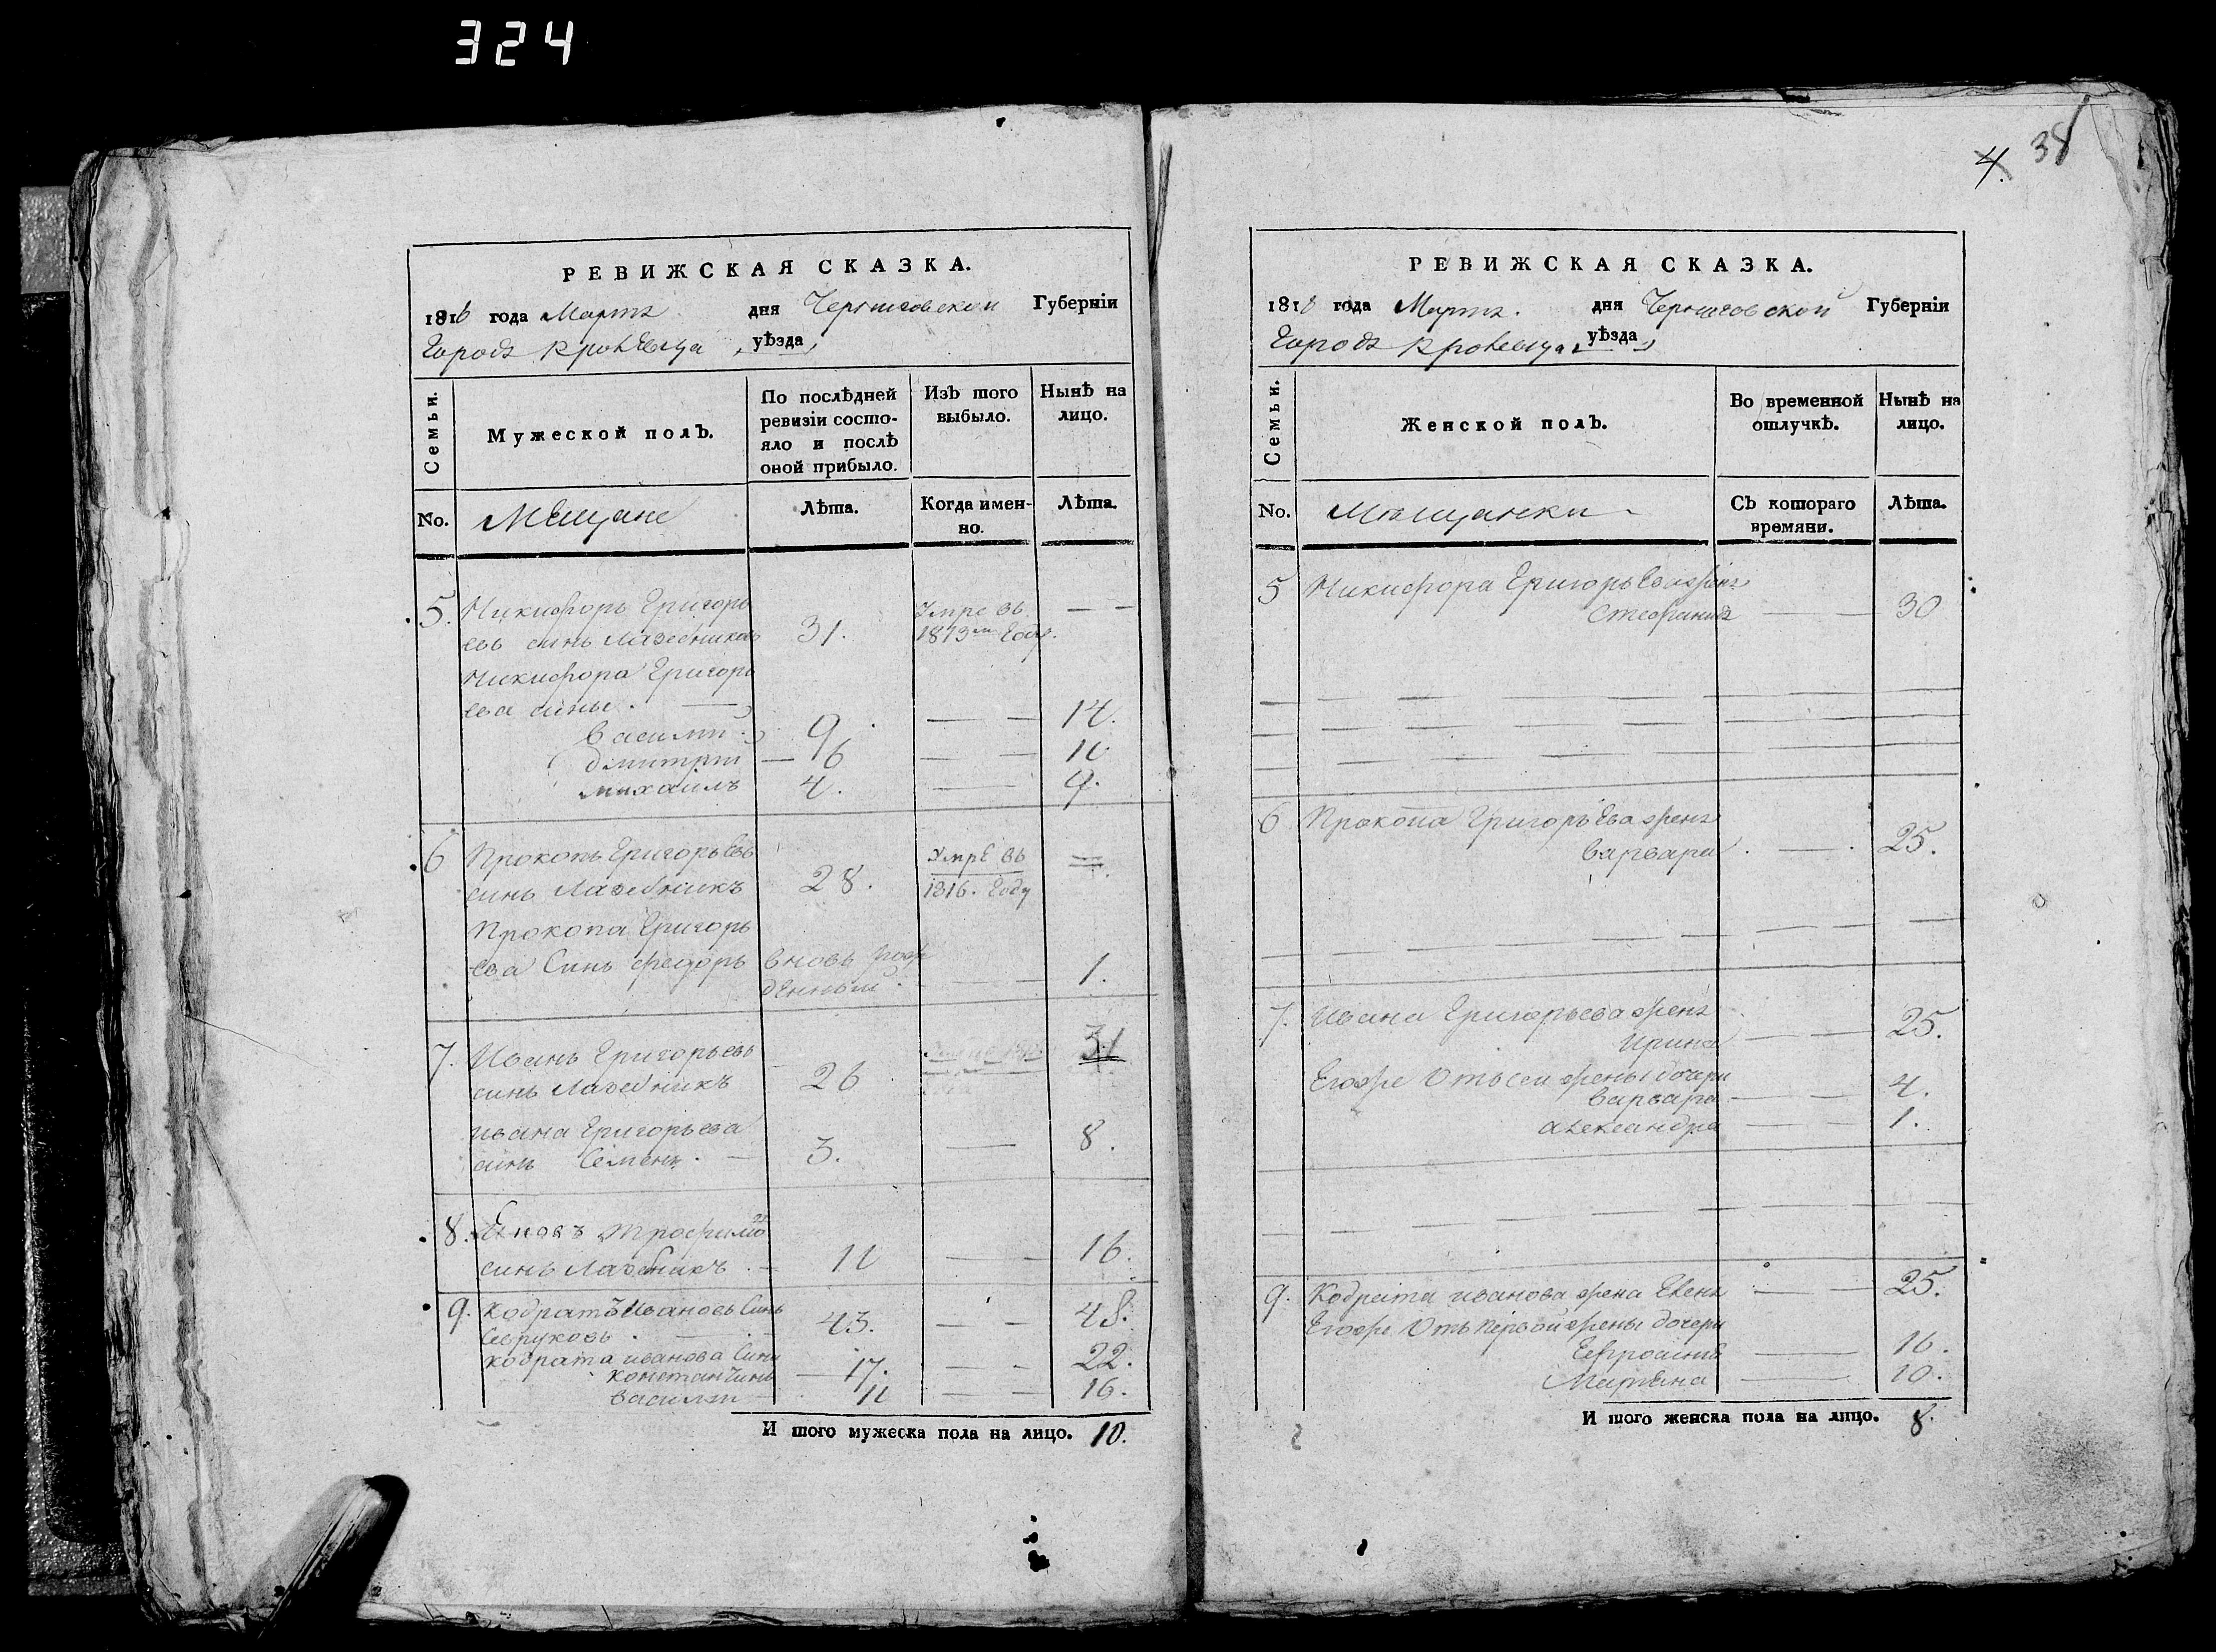 324
РЕВИЖСКАЯ СКАЗКА.
1816 года Мартъ дня Черниговской Губерніи
Городъ Кролевца уѣзда
Семьи.
Мужеской полъ.
По послѣдней ревизіи состояло и послѣ оной прибыло.
Изъ того выбыло.
Нынѣ на лицо.
No.
Мещане
Лѣта.
Когда именно.
Лѣта.
5. Никифоръ Григорь
евъ синъ Лазебниковъ 31. Умре въ 1813м году. — —
Никифора Григорь
ева сины. —
Василий 9. — — 14.
Дмитрий — 6 — — 11
Михаилъ 4. — 9.
6 Прокопъ Григорьевъ
синъ Лазебникъ 28. Умре въ 1816. Году —
Прокопа Григорь
ева Синъ Федоръ вновь рож
денный. — — 1.
7. Иванъ Григорьевъ
синъ Лазебникъ 26 31
Ивана Григорьева
синъ Семенъ. — 3. — 8.
8. Трофимо
синъ Лазебникъ. — 11 — — 16.
9. Кодратъ Ивановъ Синъ
Севруковъ. 43. — — 48.
Кодрата Иванова Сини
Константинъ — 17. — — 22.
Василий — 11 — — 16.
И того мужеска пола на лицо. 10.
4. 38
РЕВИЖСКАЯ СКАЗКА.
1816 года Мартъ. дня Черниговской Губерніи
Городъ Кролевца уѣзда
Семьи.
Женской полъ.
Во временной отлучкѣ.
Нынѣ на лицо.
No.
Мещанки
Съ котораго времяни.
Лѣта.
5 Никифора Григорьева жена
Стефанида — — 30
6 Прокопа Григорьева жена
Варвара. — . 25.
7. Ивана Григорьева жена
Ирина — — 25.
Егоже Отъ сеи жены дочери
Варвара — — 4.
Александра — — 1.
9. Кодрата Иванова жена Елена — — 25.
Егоже Отъ первой жены дочери
Евфросиния — 16.
Марьяна — 10.
И того женска пола на лицо. 8.